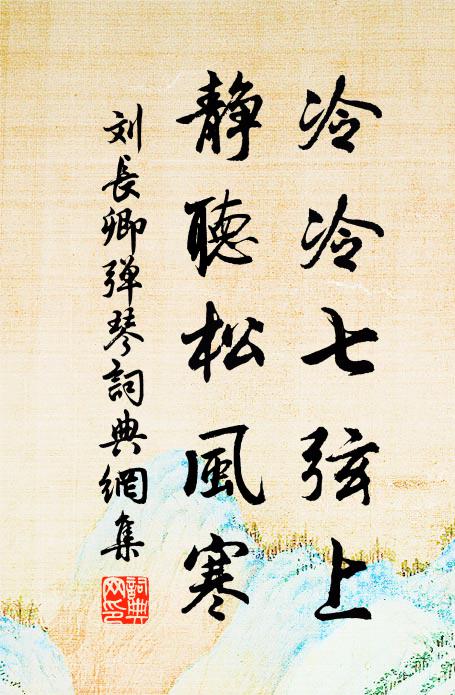 冷冷七弦上
静聽松風寒
刘長卿弹琴詞典網集
詞典网印